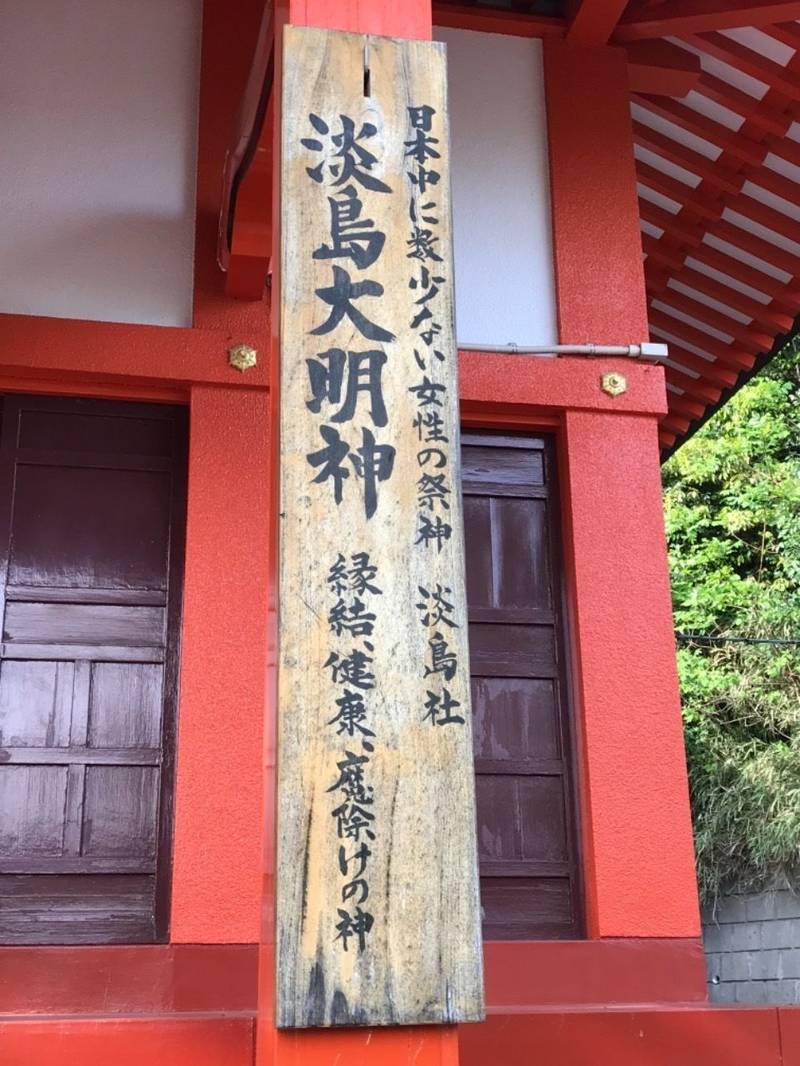 日本中に数少ない女性の祭神 淡島社
淡島大明神 縁結、健康、魔除けの神